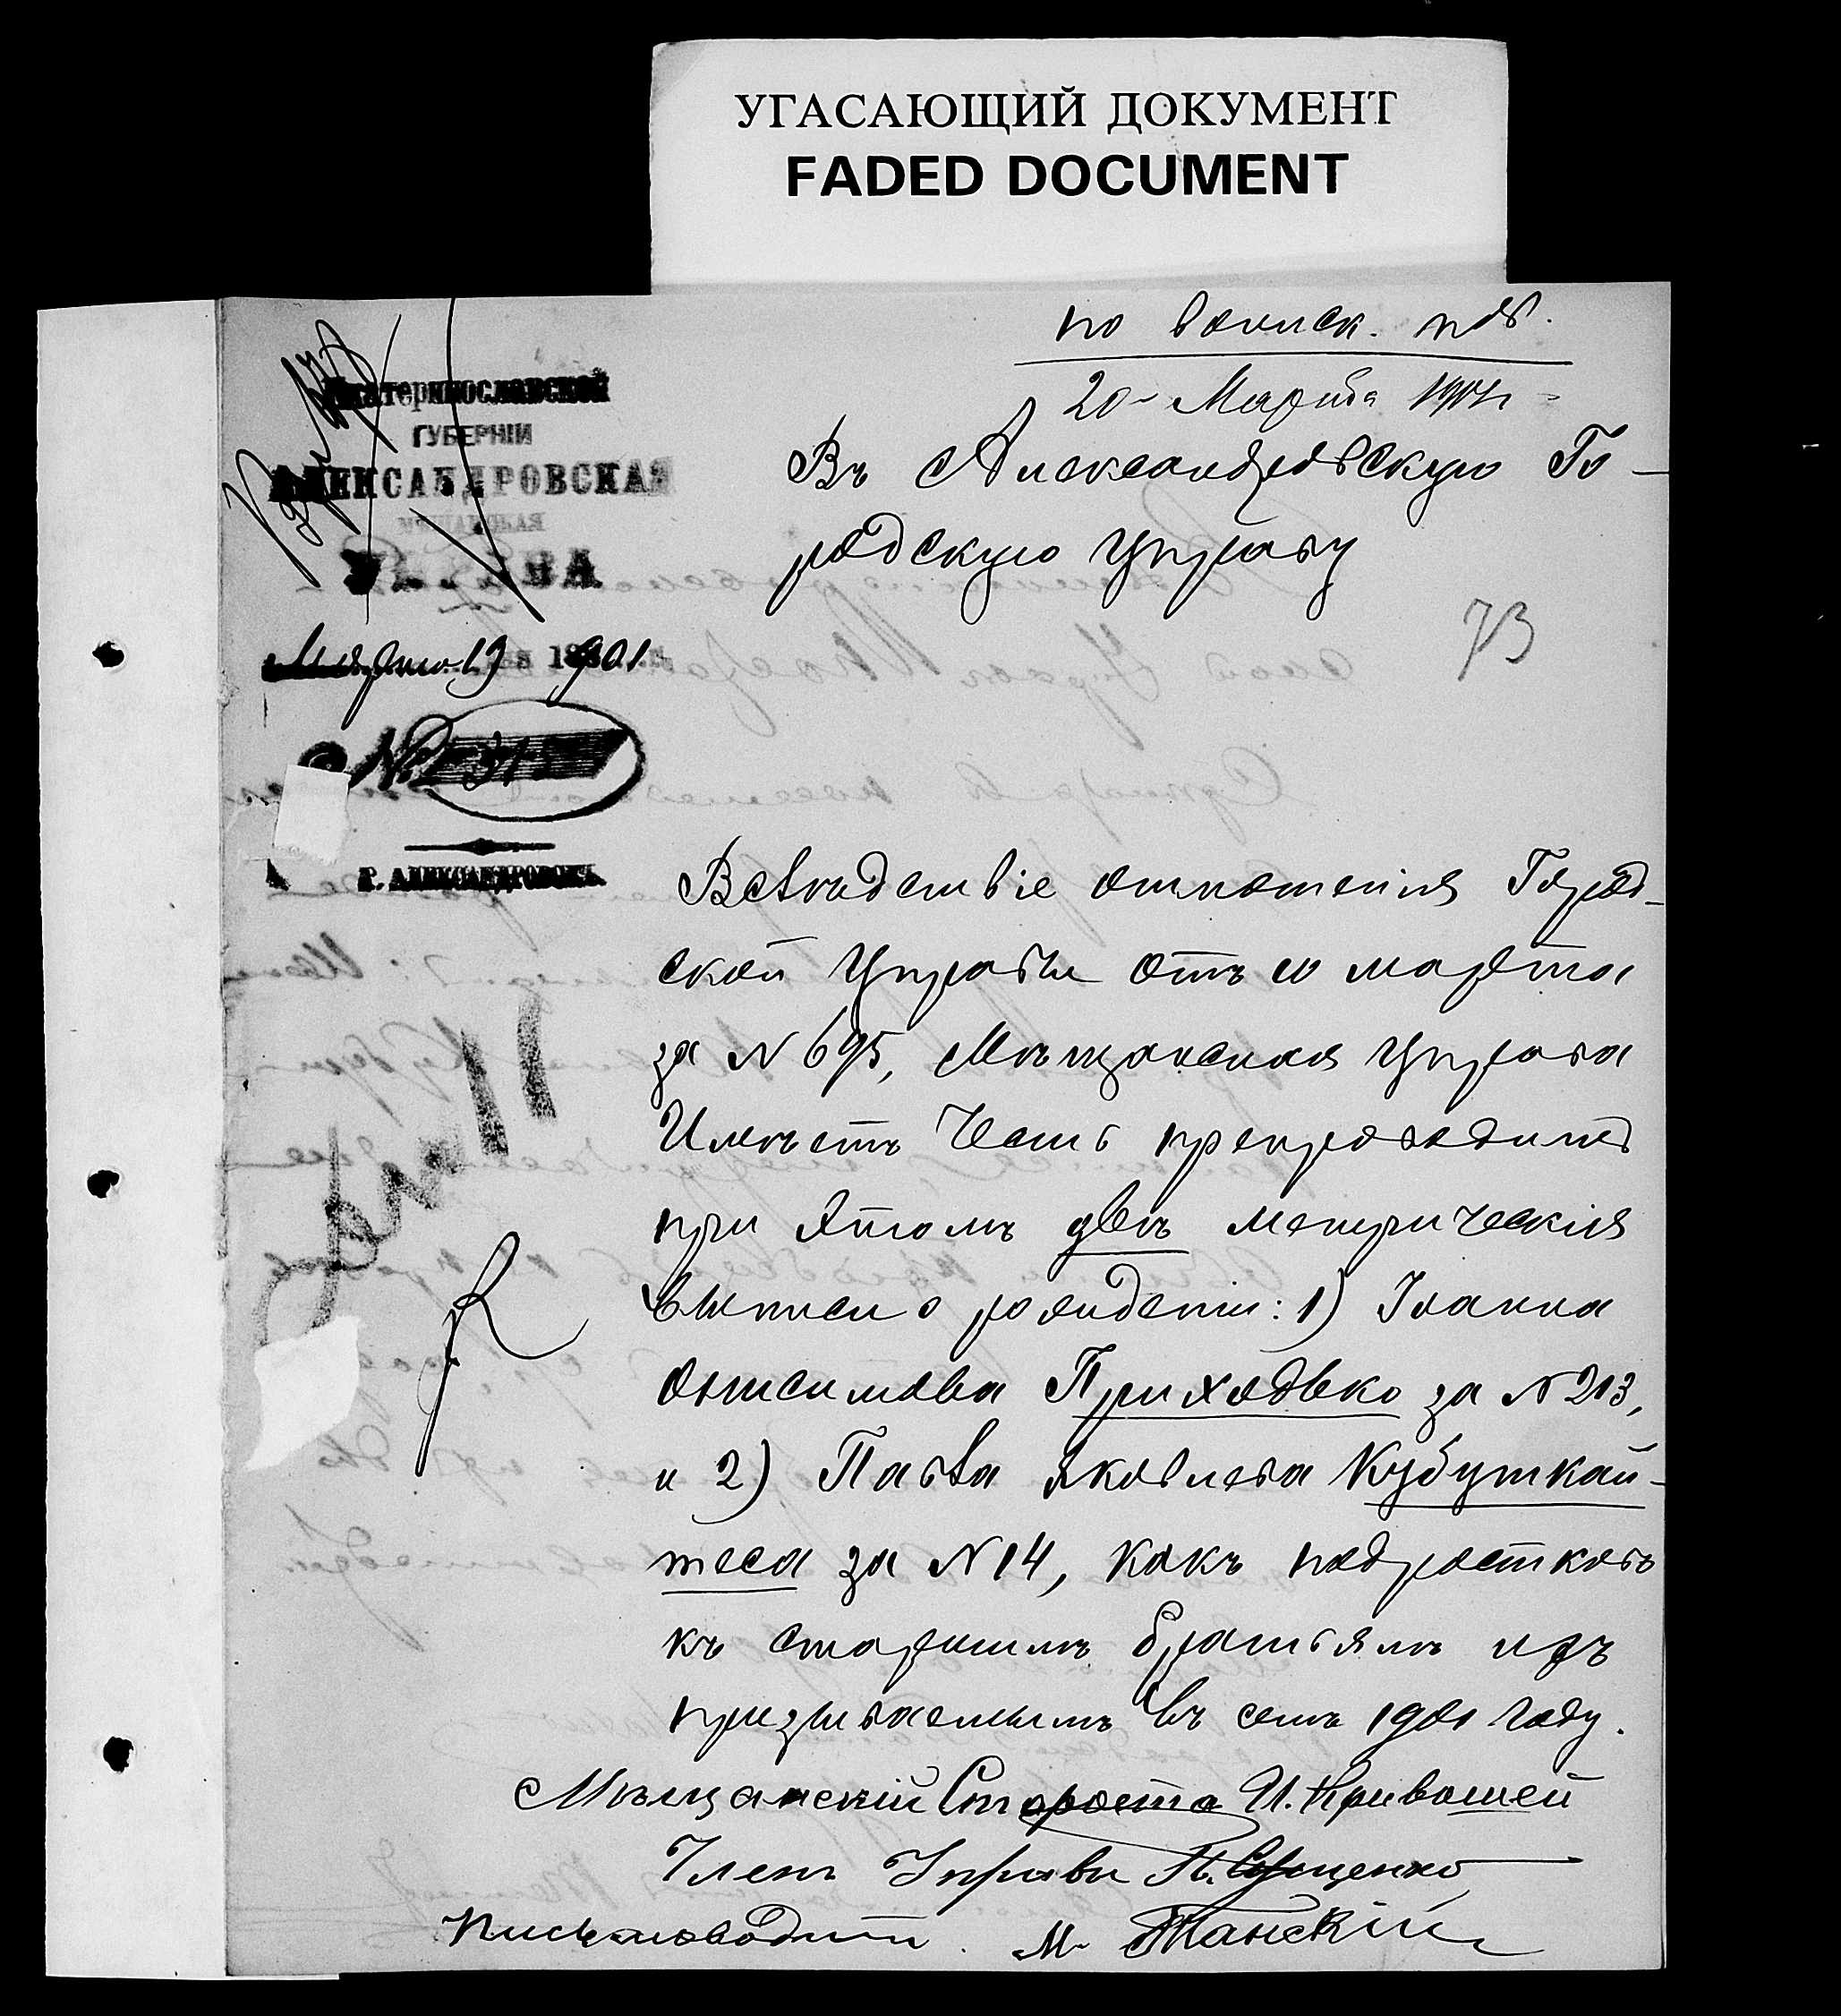 УГАСАЮЩИЙ ДОКУМЕНТ
FADED DOCUMENT
по воинск. пов.
20 Марта 1901 г
Екатеринославской
ГУБЕРНІИ
АЛЕКСАНДРОВСКАЯ
МѢЩАНСКАЯ
УПРАВА
Марта 19 1901
№
Г. АЛЕКСАНДРОВСКЪ
Въ Александровскую Го-
родскую Управу
73
Вслѣдствіе отношенія Город-
ской Управы отъ 10 марта
за N 695, Мѣщанская Управа
Имѣетъ честь препроводить
при этомъ двѣ метрическія
выписи о рожденіи: 1) Іоанна
Онисимова Приходько за N 213,
и 2) Павла Яковлева Кубушкай-
теса за N 14, какъ подростковъ
къ старшимъ братьямъ ихъ
призываемымъ въ семъ 1901 году.
Мѣщанскій Староста И. Кривошей
Членъ Управы
Письмоводит. М. Танскій